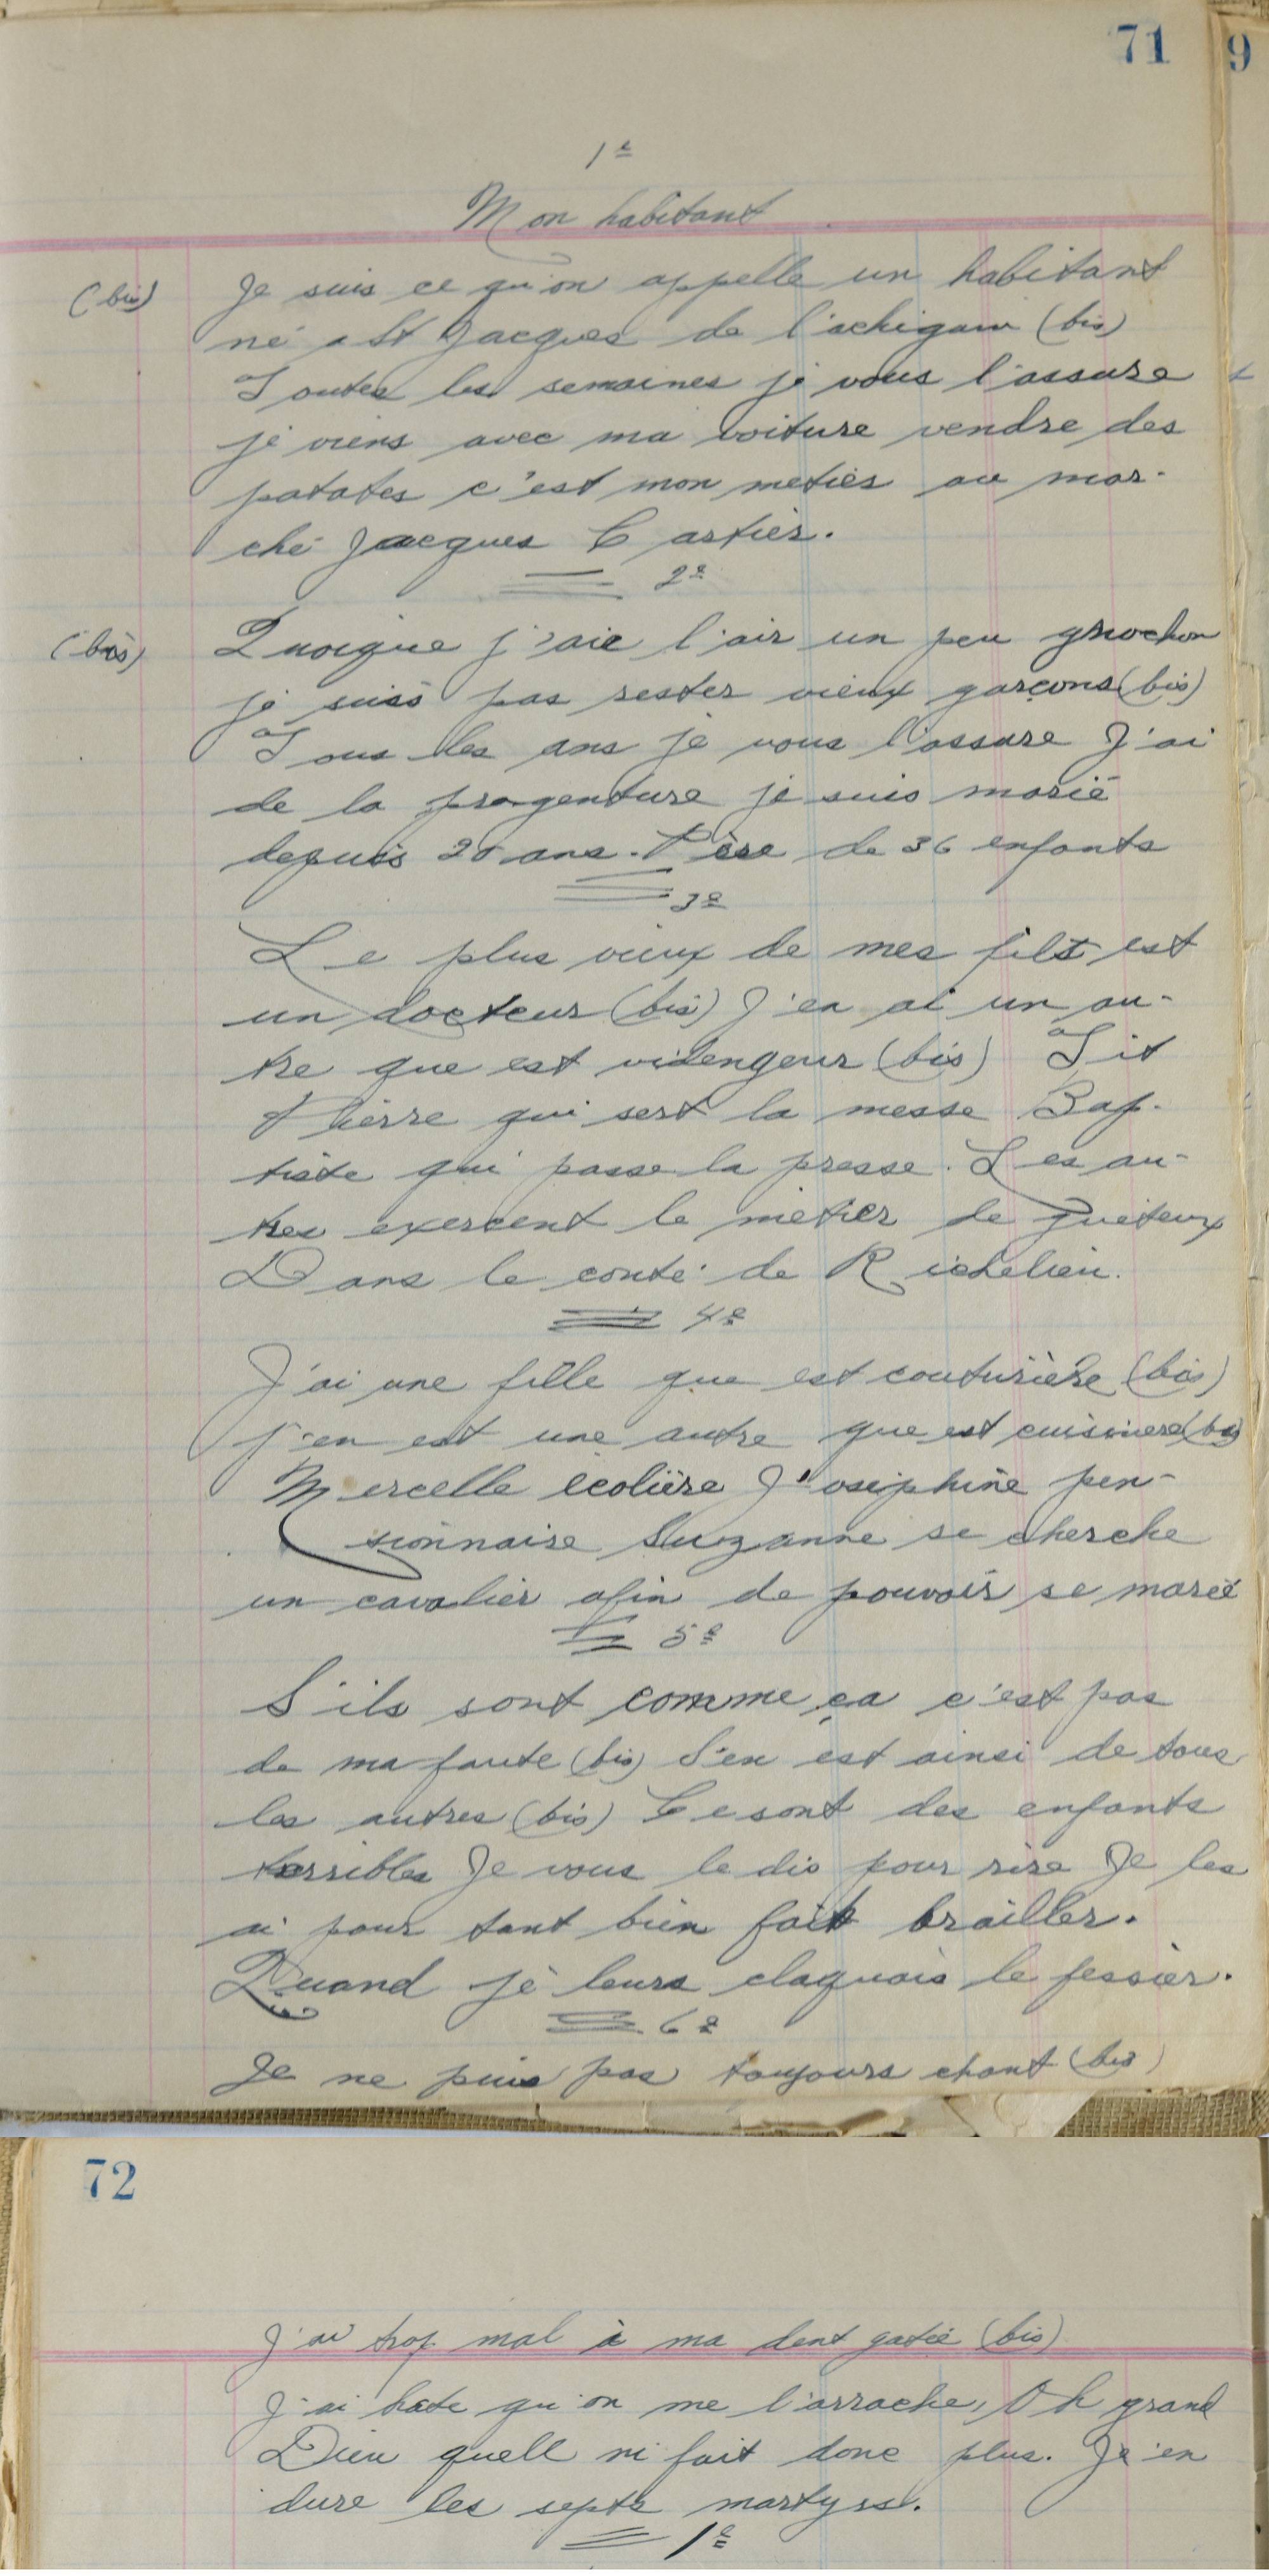 71 9
1e
Mon habitant
(bis) Je suis ce qu'on appelle un habitant
né a St Jacques de l'achigan (bis)
Toutes les semaines je vous l'assure
je viens avec ma voiture vendre des
patates c'est mon metier au mar-
ché Jacques Cartier.
2e
(bis) Quoique j'aie l'air un peu gruochon
je suis pas rester vieux garçons (bis)
Tous les ans je vous l'assure J'ai
de la progenture je suis marié
depuis 20 ans. Père de 36 enfants
3e
Le plus vieux de mes fils est
un docteur (bis) J'en ai un au-
tre que est videngeur (bis) Tit
Pierre qui sert la messe Bap-
tiste qui passe la presse. Les au-
tres exercent le métier de quêteux
Dans le conté de Richelieu.
4e
J'ai une fille que est couturière (bis)
j'en est une autre que est cuisinere (bis)
Mercelle écolière J'osephine pen-
sionnaire Suzanne se cherche
un cavalier afin de pouvoir se marié
5e
S'ils sont comme ça c'est pas
de ma faute (bis) S'en est ainsi de tous
les autres (bis) Ce sont des enfants
terribles Je vous le dis pour rire Je les
ai pour tant bien fait brailler.
Quand je leurs claquais le fessier.
6e
Je ne puis pas toujours chant (bis)
72
J'ai trop mal à ma dent gatée (bis)
J'ai hate qu'on me l'arrache, Oh grand
Dieu quell m'fait donc plus. Je'en
dure les septs martyrs.
1e